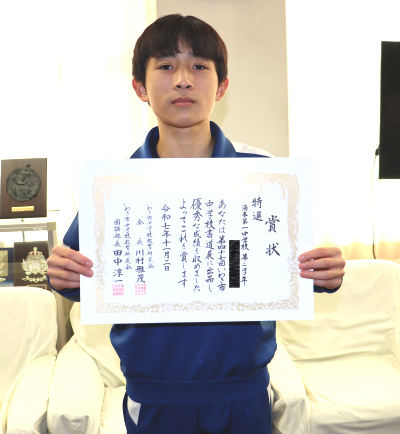 賞状
特選
海泰第一中学校 第二学年
あなたは第四十七回いわき市
中学校書道展に出品し
優秀な成績を収めました
よってこれを賞します
令和七年十一月二日
いわき市中学校教育研究会
会長 川村雅茂
いわき市中学校教育研究会
国語部長 田中淳